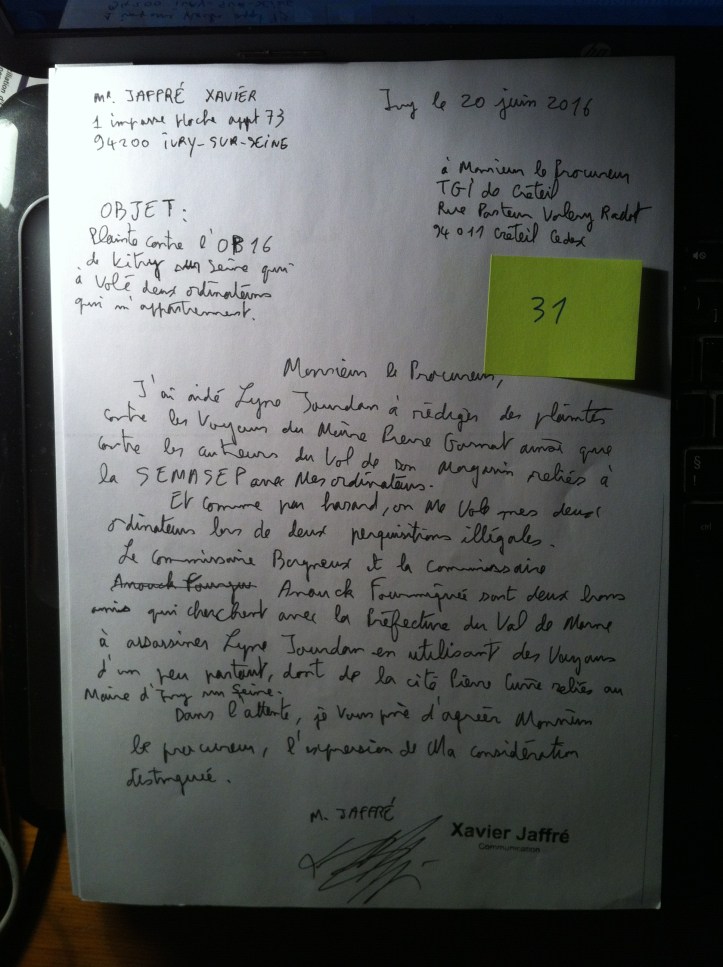 Mr. JAFFRÉ XAVIER
1 impasse Hoche appt 73
94200 IVRY-SUR-SEINE
Ivry le 20 juin 2016
à Monsieur le Procureur
TGI de Créteil
Rue Pasteur Valery Radot
94011 Créteil Cedex
OBJET:
Plainte contre l'OPJ 16
de Vitry sur Seine qui
à Volé deux ordinateurs
qui m'appartiennent.
31
Monsieur le Procureur,
J'ai aidé Lyne Jourdan à rédiger des plaintes
contre les Voyous du Maire Pierre Gosnat ainsi que
contre les auteurs du Vol de son Magasin reliés à
la SEMASEP avec Mes ordinateurs.
Et comme par hasard, on Me Vole mes deux
ordinateurs lors de deux perquisitions illégales.
Le Commissaire Bergneux et la commissaire
Anouck Fourmigué sont deux bons
amis qui cherchent avec la Préfecture du Val de Marne
à assassiner Lyne Jourdan en utilisant des Voyous
d'un peu partout, dont de la cité Pierre Curie reliés au
Maire d'Ivry sur Seine.
Dans l'attente, je Vous prie d'agréer Monsieur
le procureur, l'expression de Ma considération
distinguée.
M. JAFFRÉ
Xavier Jaffré
Communication